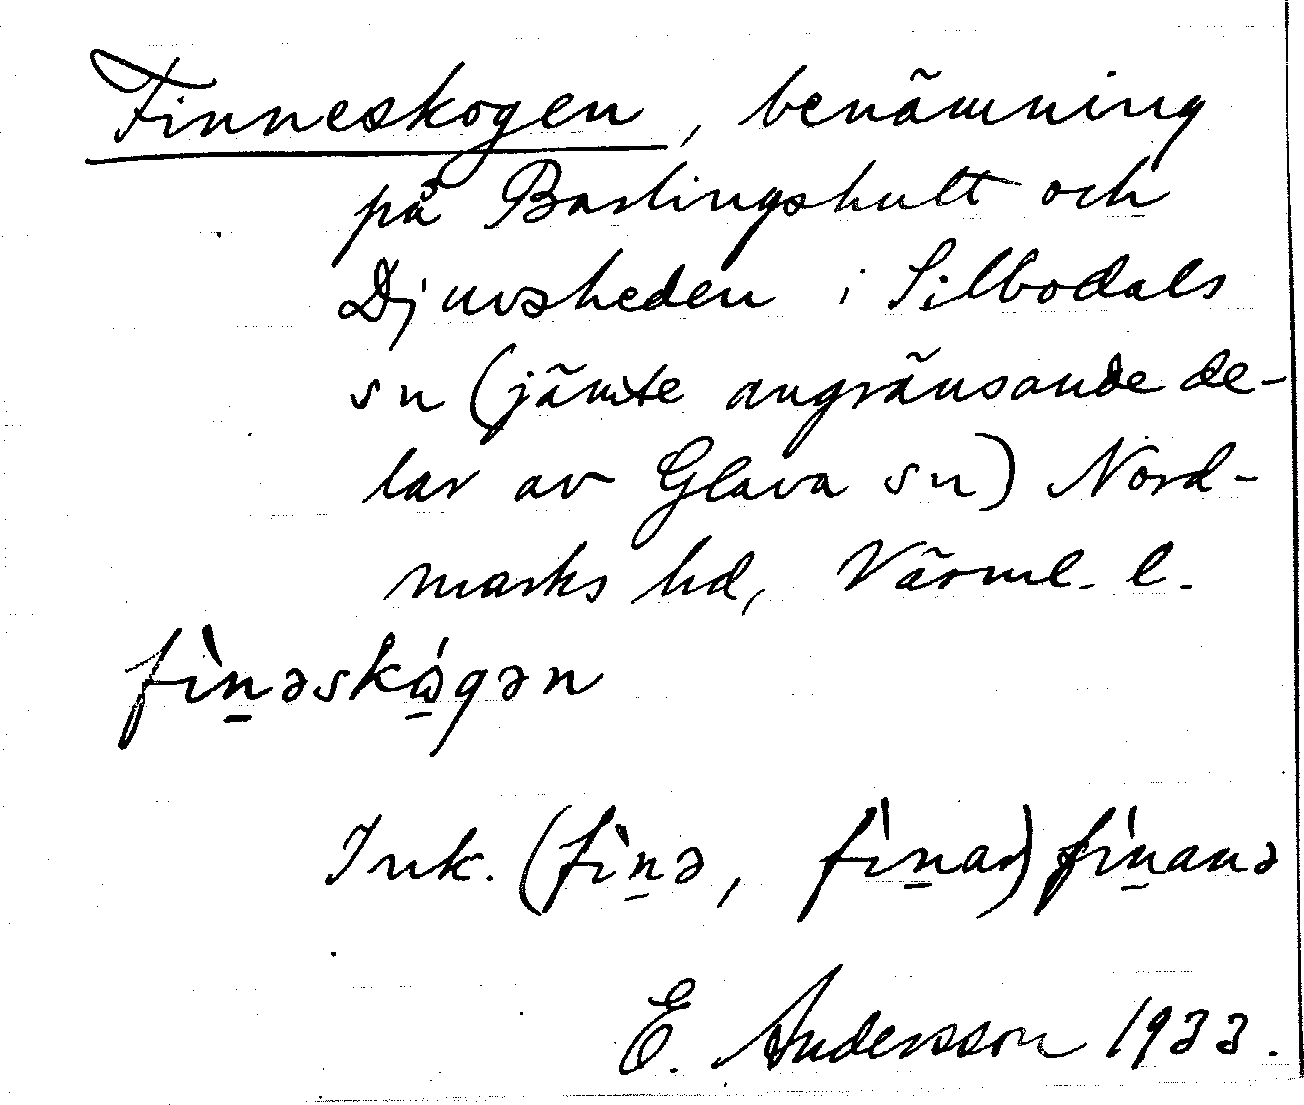 Finneskogen, benämning
på Barlingshult och
Djuvsheden i Silbodals
sn (jämte angränsande de-
lar av Glava sn) Nord-
marks hd, Värml. l.
fìn̠əskɷ̠́gən
Ink. (fìn̠ə, fìn̠ar) fìn̠anə
E. Andersson 1933.